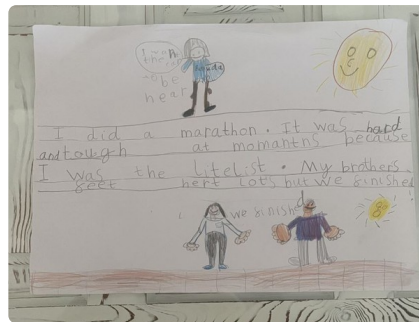 to be
hear
I did a marathon. It was hard
and tough at momants because
I was the litelist. My brothers
feet hert lots but we finished
we finished